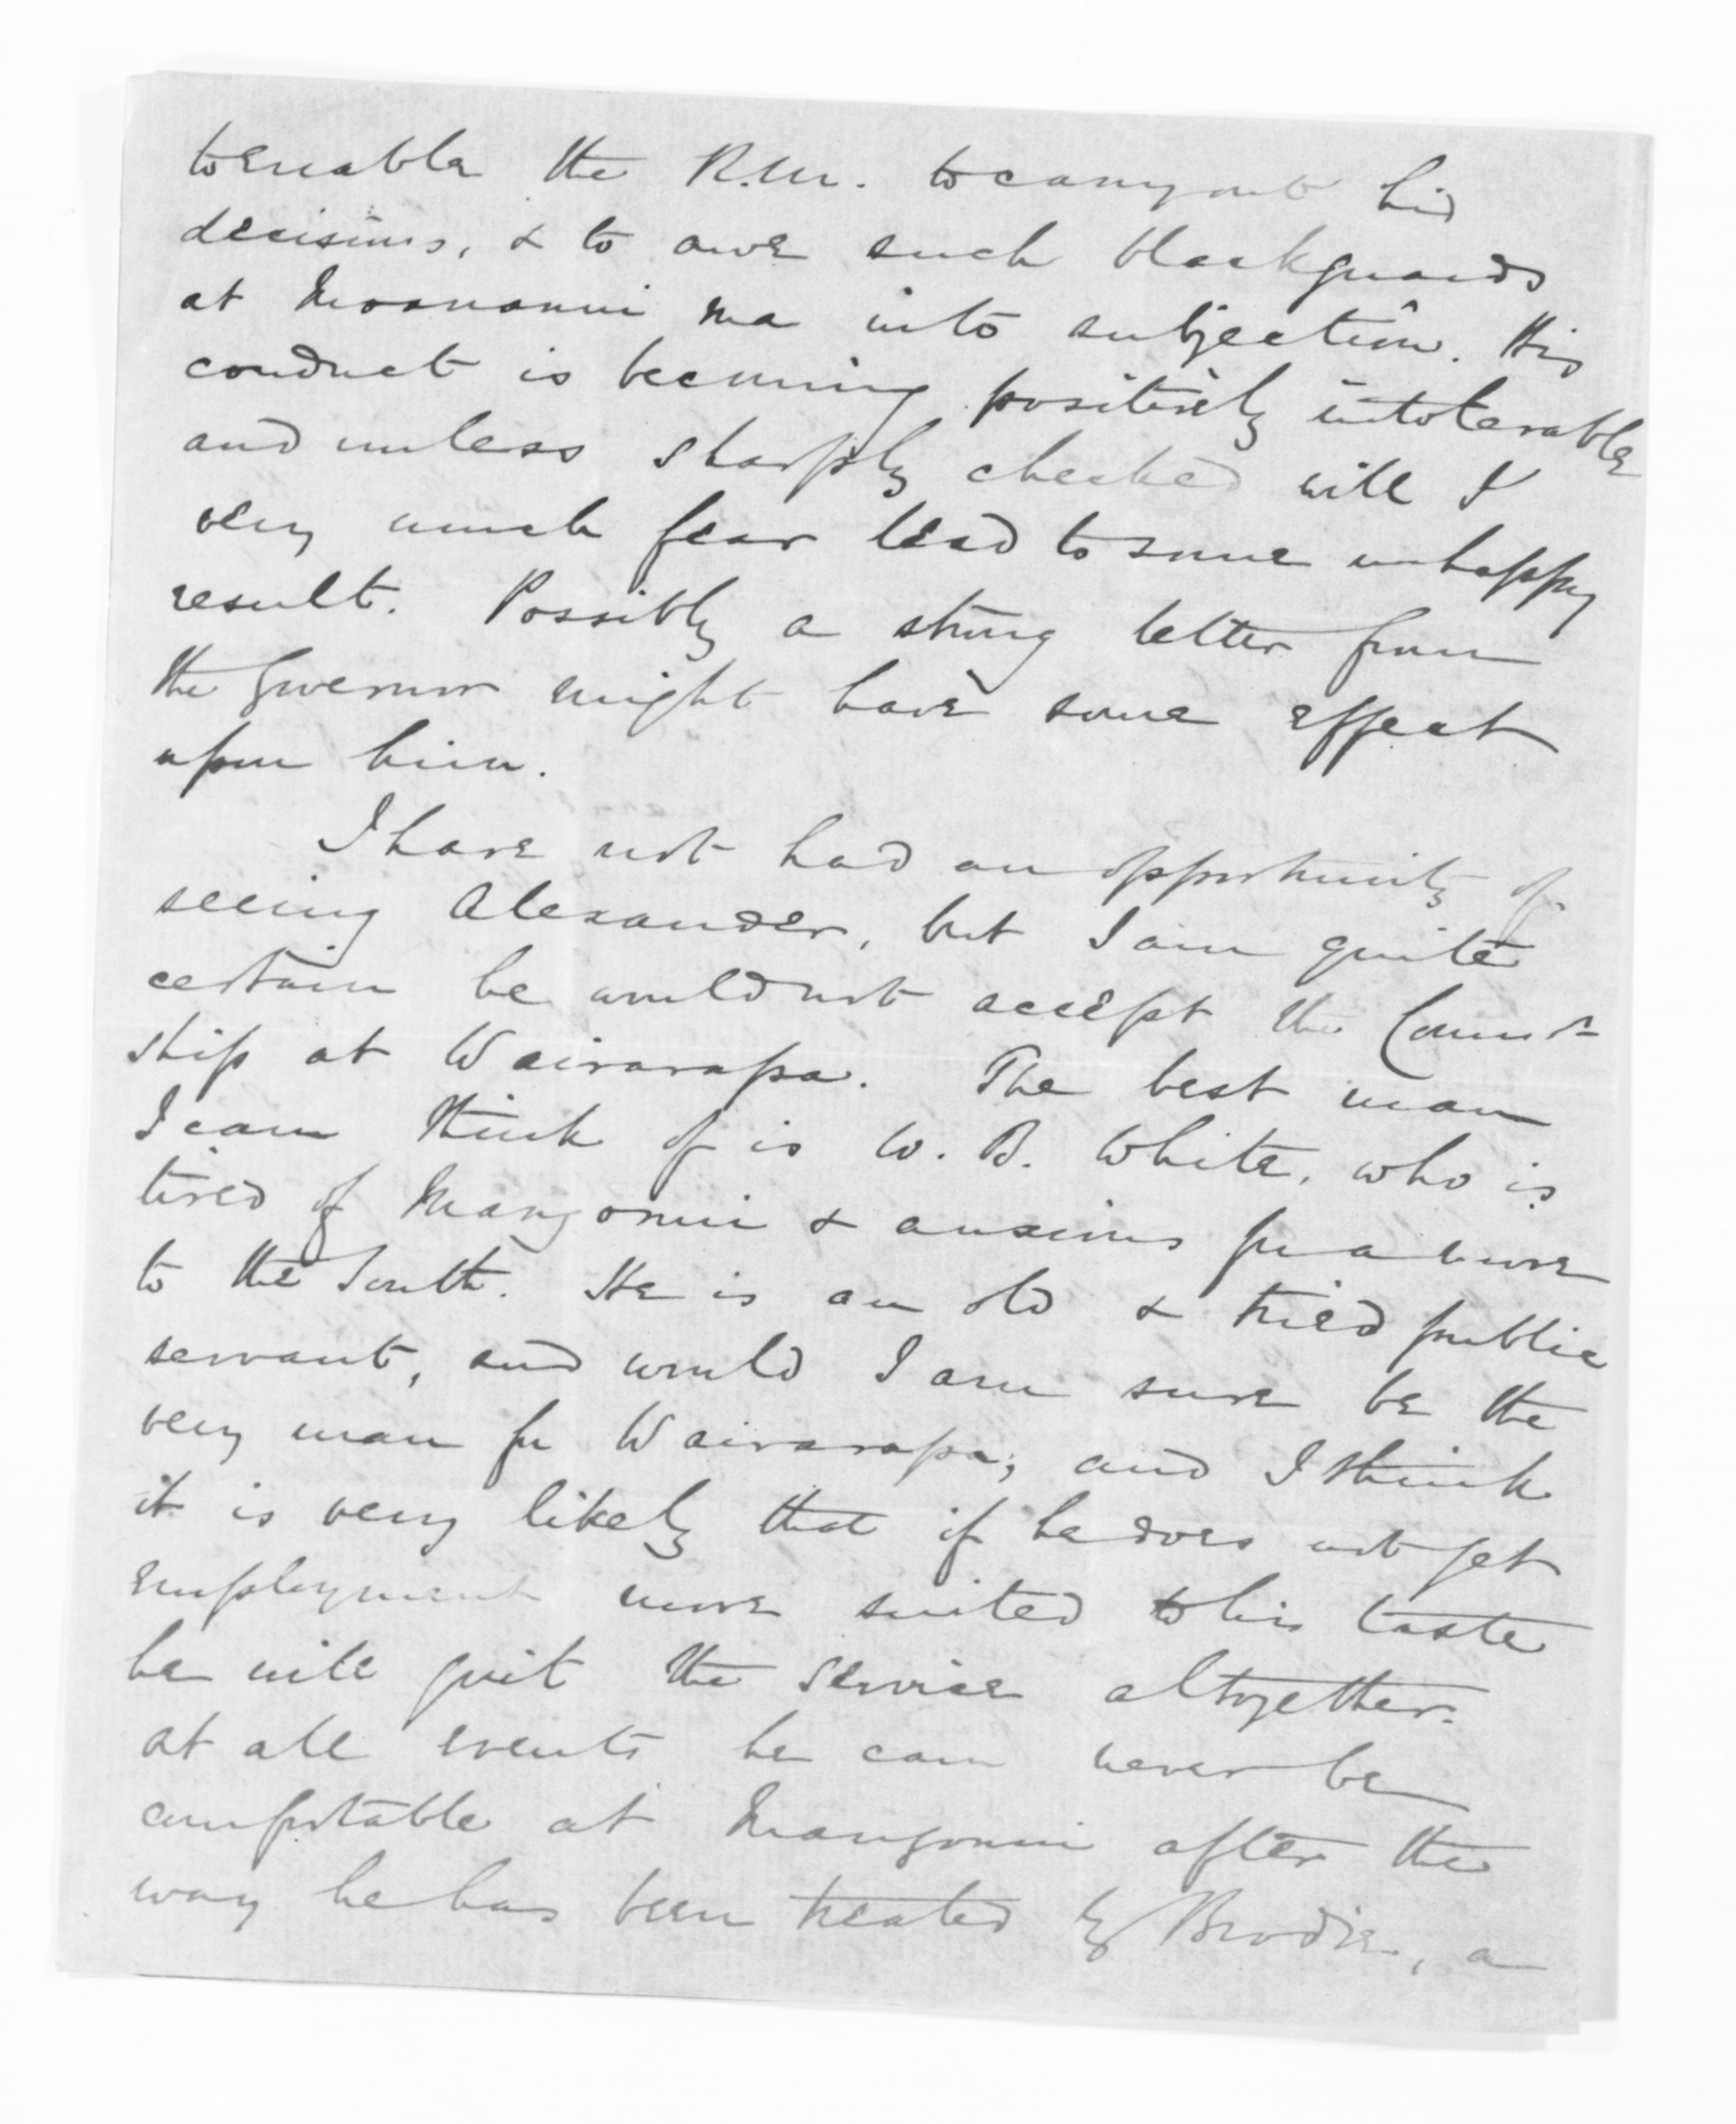 to enable the R.M. to carry out his
decisions, & to awe such blackguards
at Moananui ma into subjection. His
conduct is becoming positively intolerable
and unless sharply checked will I
very much fear lead to some unhappy
result. Possibly a strong letter from
the Governor might have some effect
upon him.
I have not had an opportunity of
seeing Alexander, but I am quite
certain he would not accept the Commr
ship at Wairarapa. The best man
I can think of is W. B. White, who is
tired of Mangonui & anxious for a move
to the South. He is an old & tried public
servant, and would I am sure be the
very man for Wairarapa; and I think
it is very likely that if he does not get
employment more suited to his taste
he will quit the service altogether.
at all events he can never be
comfortable at Mangonui after the
way he has been treated by Brodie, a